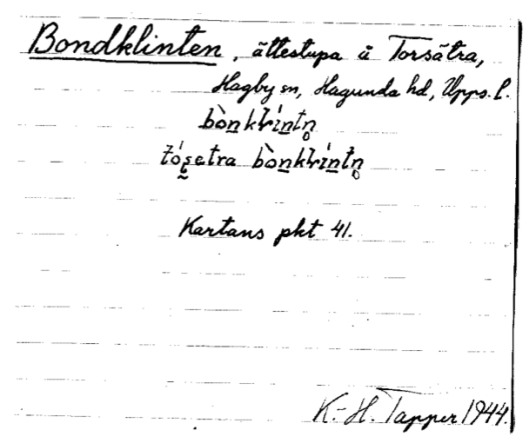 Bondklinten, ättestupa å Torsätra,
Hagby sn, Hagunda hd, Upps. l.
bò̱nkłíntn̥
tó́s̠etra bò̱nkłíntn̥
Kartans pkt 41.
K.-H. Tapper 1944.